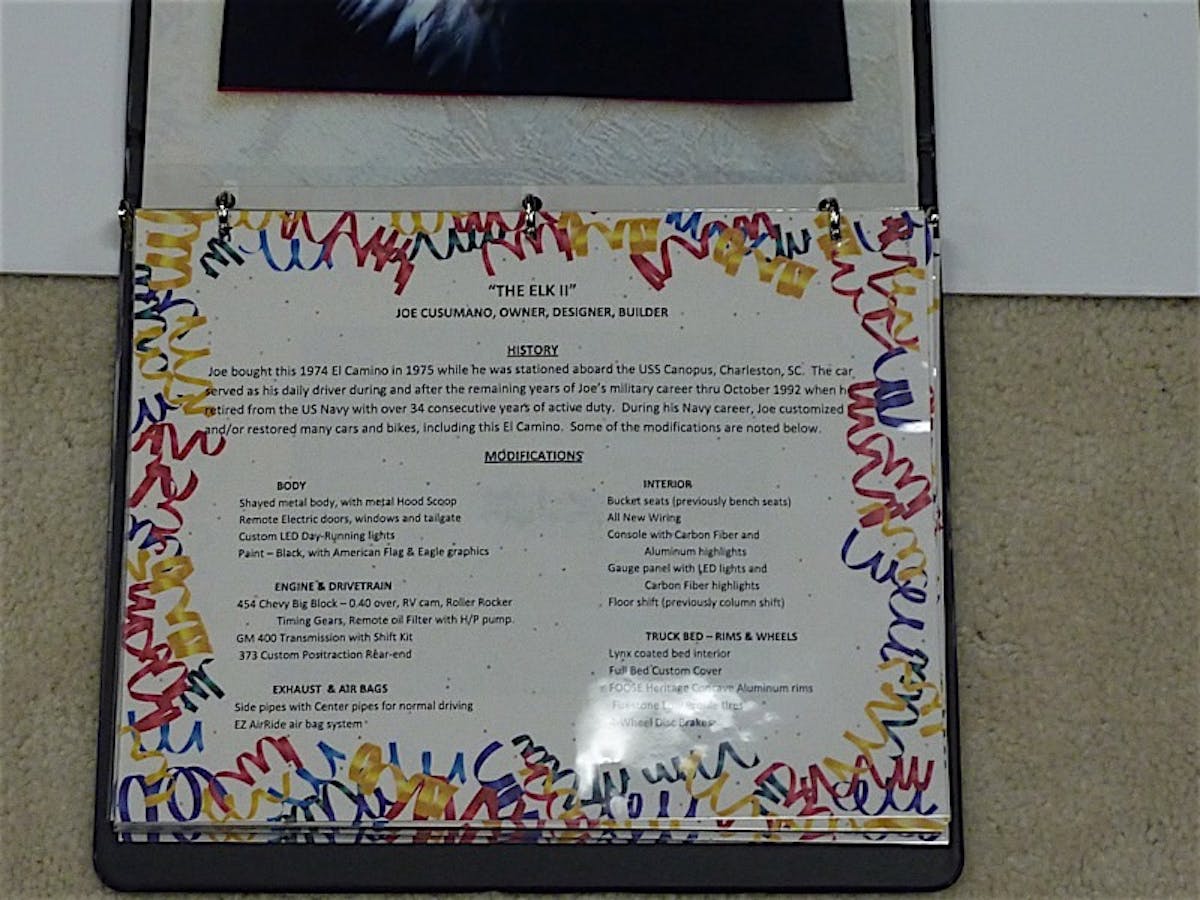 "THE ELK II"
JOE CUSUMANO, OWNER, DESIGNER, BUILDER
HISTORY
Joe bought this 1974 El Camino in 1975 while he was stationed aboard the USS Canopus, Charleston, SC. The car
served as his daily driver during and after the remaining years of Joe's military career thru October 1992 when h
retired from the US Navy with over 34 consecutive years of active duty. During his Navy career, Joe customized
and/or restored many cars and bikes, including this El Camino. Some of the modifications are noted below.
MODIFICATIONS
BODY
Shayed metal body, with metal Hood Scoop
Remote Electric doors, windows and tailgate
Custom LED Day-Running lights
Paint – Black, with American Flag & Eagle graphics
ENGINE & DRIVETRAIN
454 Chevy Big Block – 0.40 over, RV cam, Roller Rocker
Timing Gears, Remote oil Filter with H/P pump.
GM 400 Transmission with Shift Kit
373 Custom Positraction Rear-end
EXHAUST & AIR BAGS
Side pipes with Center pipes for normal driving
EZ AirRide air bag system
INTERIOR
Bucket seats (previously bench seats)
All New Wiring
Console with Carbon Fiber and
Aluminum highlights
Gauge panel with LED lights and
Carbon Fiber highlights
Floor shift (previously column shift)
TRUCK BED – RIMS & WHEELS
Lynx coated bed interior
Full Bed Custom Cover
FOOSE Heritage Concave Aluminum rims
Firestone Low Profile tires
4-Wheel Disc Brakes